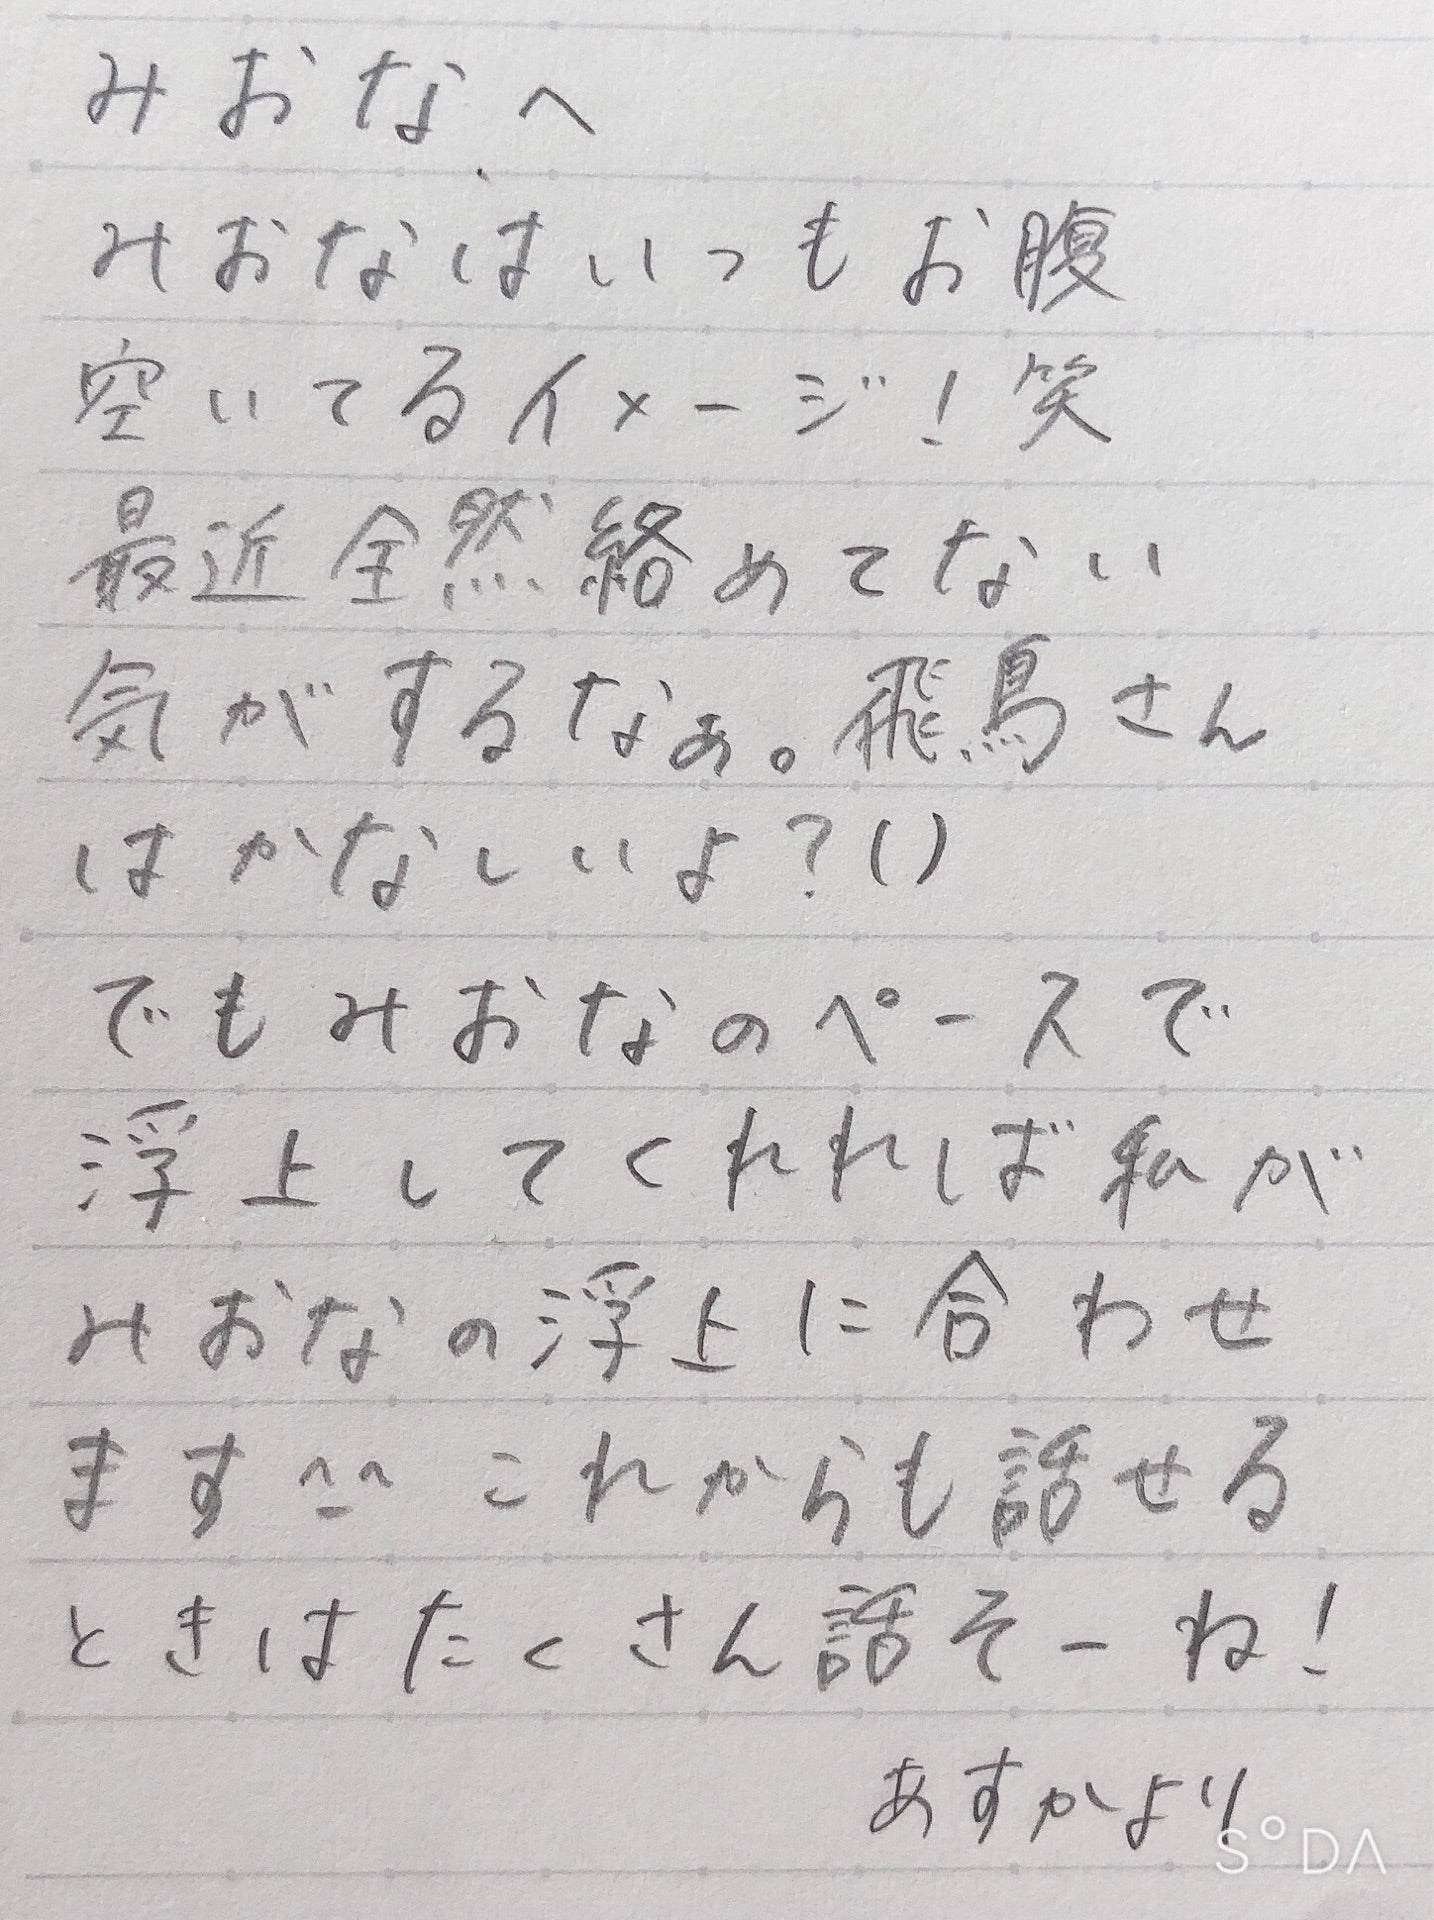 みおなへ
みおなはいつもお腹
空いてるイメージ！笑
最近全然絡めてない
気がするなぁ。飛鳥さん
はかなしいよ？()
でもみおなのペースで
浮上してくれれば私が
みおなの浮上に合わせ
ます^_^ これからも話せる
ときはたくさん話そーね！
あすかより
SODA